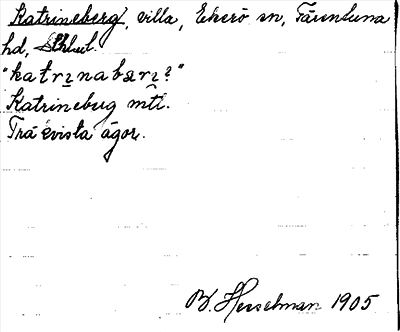 Katrineberg, villa, Ekerö sn, Färentuna
hd, Sthlm l.
"katrinabærı?"
Katrineberg mtl.
Trä evista ägor.
B. Hesselman 1905